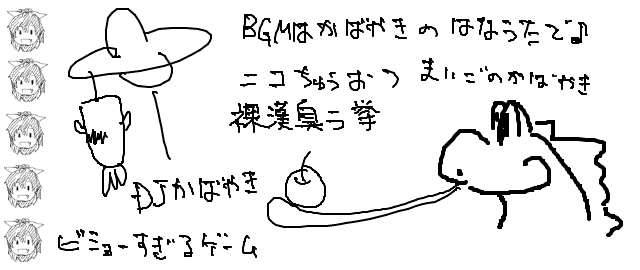 BGMはかばやきのはなうたで♪
ニコちゅうおつ まいごのかばやき
裸漢臭ラ挙
DJかばやき
ビミョーすぎるゲーム